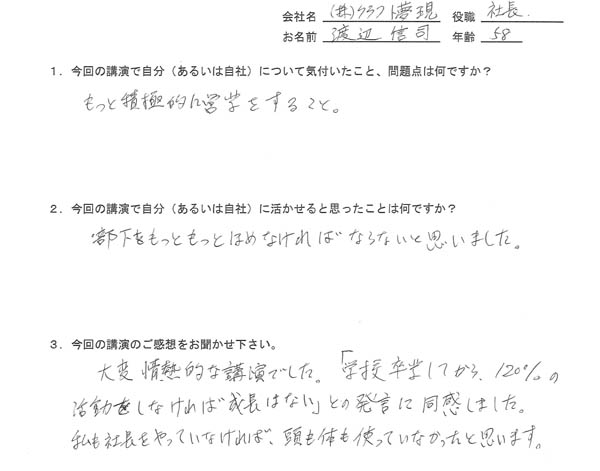 会社名 (株)クラフト夢現 役職 社長.
お名前 渡辺 信司 年齢 58
1．今回の講演で自分（あるいは自社）について気付いたこと、問題点は何ですか？
もっと積極的に営業をすること。
2．今回の講演で自分（あるいは自社）に活かせると思ったことは何ですか？
部下をもっともっとほめなければならないと思いました。
3．今回の講演のご感想をお聞かせ下さい。
大変情熱的な講演でした。「学校卒業してから、120%の
活動をしなければ成長はない」との発言に同感しました。
私も社長をやっていなければ、頭も体も使っていなかったと思います。